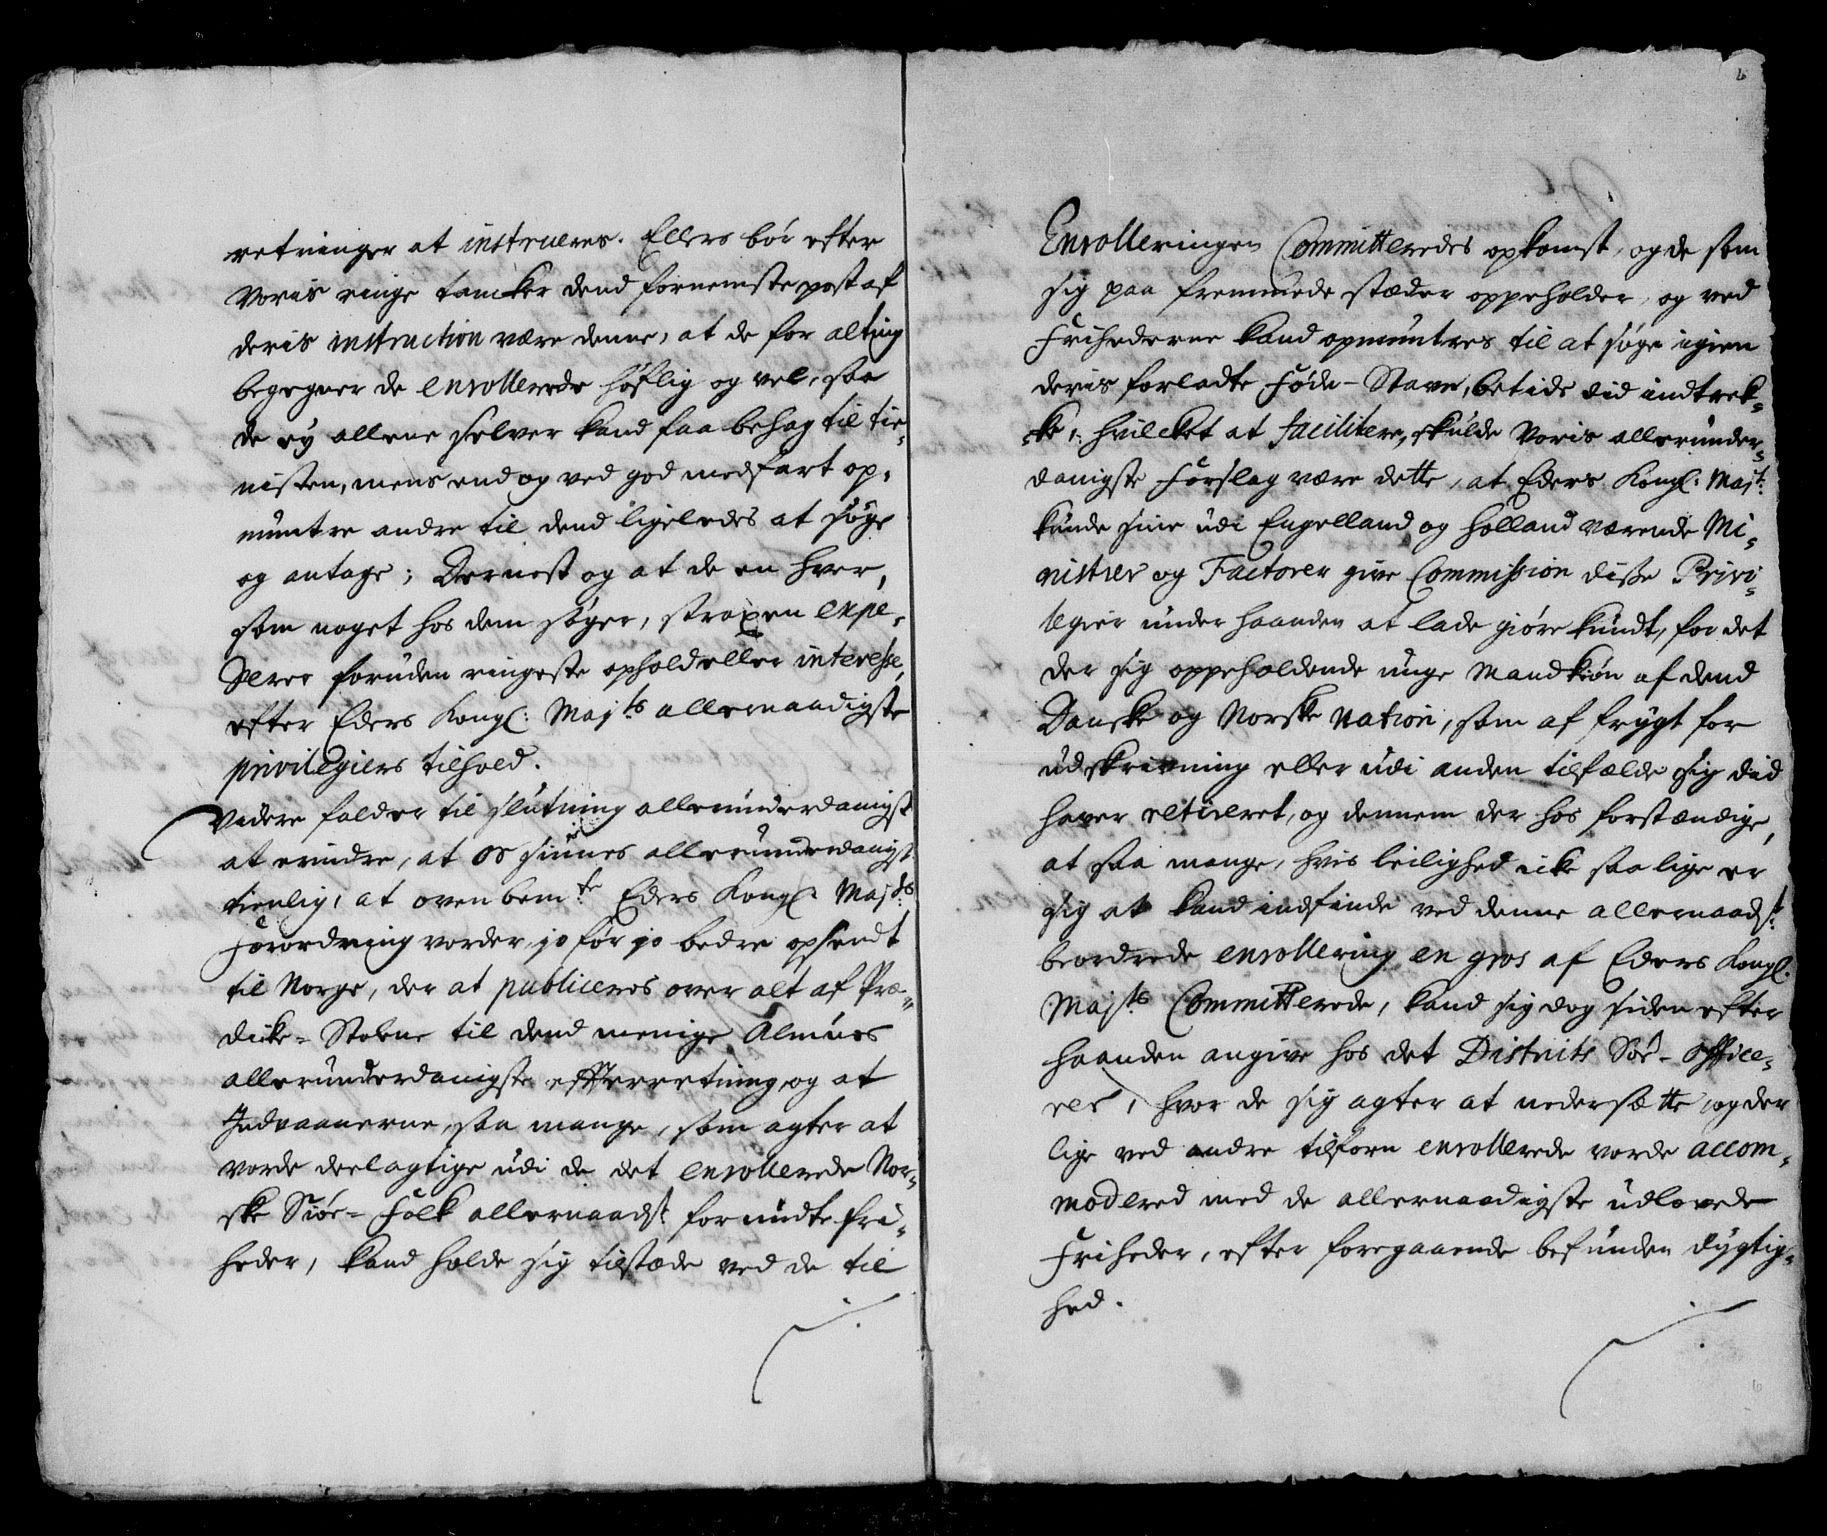 retninger at instrueres. Ellers bör efter
Voris ringe tancker dend fornemste post af
deris instruction være denne, at de for alting
begegner de enrollerede höflig og vel, saa
de ey allene selver kand faa behag til tie-
nisten, mens end og ved god medfart op-
muntre andre til dend ligeledes at söge
og antage; Dernest og at de en hver,
som noget hos dem söger, straxen expe-
derer foruden ringeste ophold eller interesse,
efter Eders Kongl: Majts allernaadigste
privilegiers tilhold.
Videre falder til slutning allerunderdanigst
at erindre, at os siunes allerunderdanigst
tienlig, at oven bemte Eders Kongl: Majts
Forordning vorder jo för jo bedre opsendt
til Norge, der at publiceres over alt af Præ-
dicke-Stolene til dend menige Almues
allerunderdanigste effterretning, og at
Indvaanerne, saa mange, som agter at
vorde deelagtige udi de det enrollerede Nor-
ske Siöe-Folk allernaadst forundte fri-
heder, kand holde sig tilstæde ved de til
6
Enrolleringen Committeredes opkomst, og de som
sig paa fremmede stæder oppeholder, og ved
Frihederne kand opmuntres til at söge igien
deris forladte Föde-Stavn, betids did indtrek-
ke, hvilcket at facilitere, skulde Voris allerunder-
danigste Forslag være dette, at Eders Kongl: Majt:
kunde sine udi Engelland og Holland værende Mi-
nistrer og Factorer give Commission disse Privi-
legier under haanden at lade giöre kundt, for det
der sig oppeholdende unge Mandkiön af dend
Danske og Norske Nation, som af frygt for
udskrivning eller udi anden tilfælde sig did
haver retireret, og dennem der hos forstændige,
at saa mange, hvis leilighed icke saa lige er
sig at kand indfinde ved denne allernaadst:
beordrede enrollering en gros af Eders Kongl:
Majts Committerede, kand sig dog siden efter
haanden angive hos det Districts Söe-Office-
rer, hvor de sig agter at nedersætte og der
lige ved andre tilforn enrollerede vorde accom-
modered med de allernaadigste udlovede
Friheder, efter foregaaende befunden dygtig-
hed.